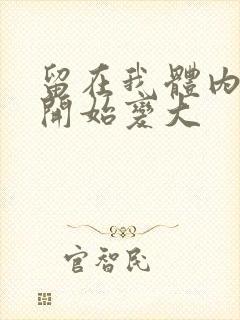 留在我體內
開始變大
官智民